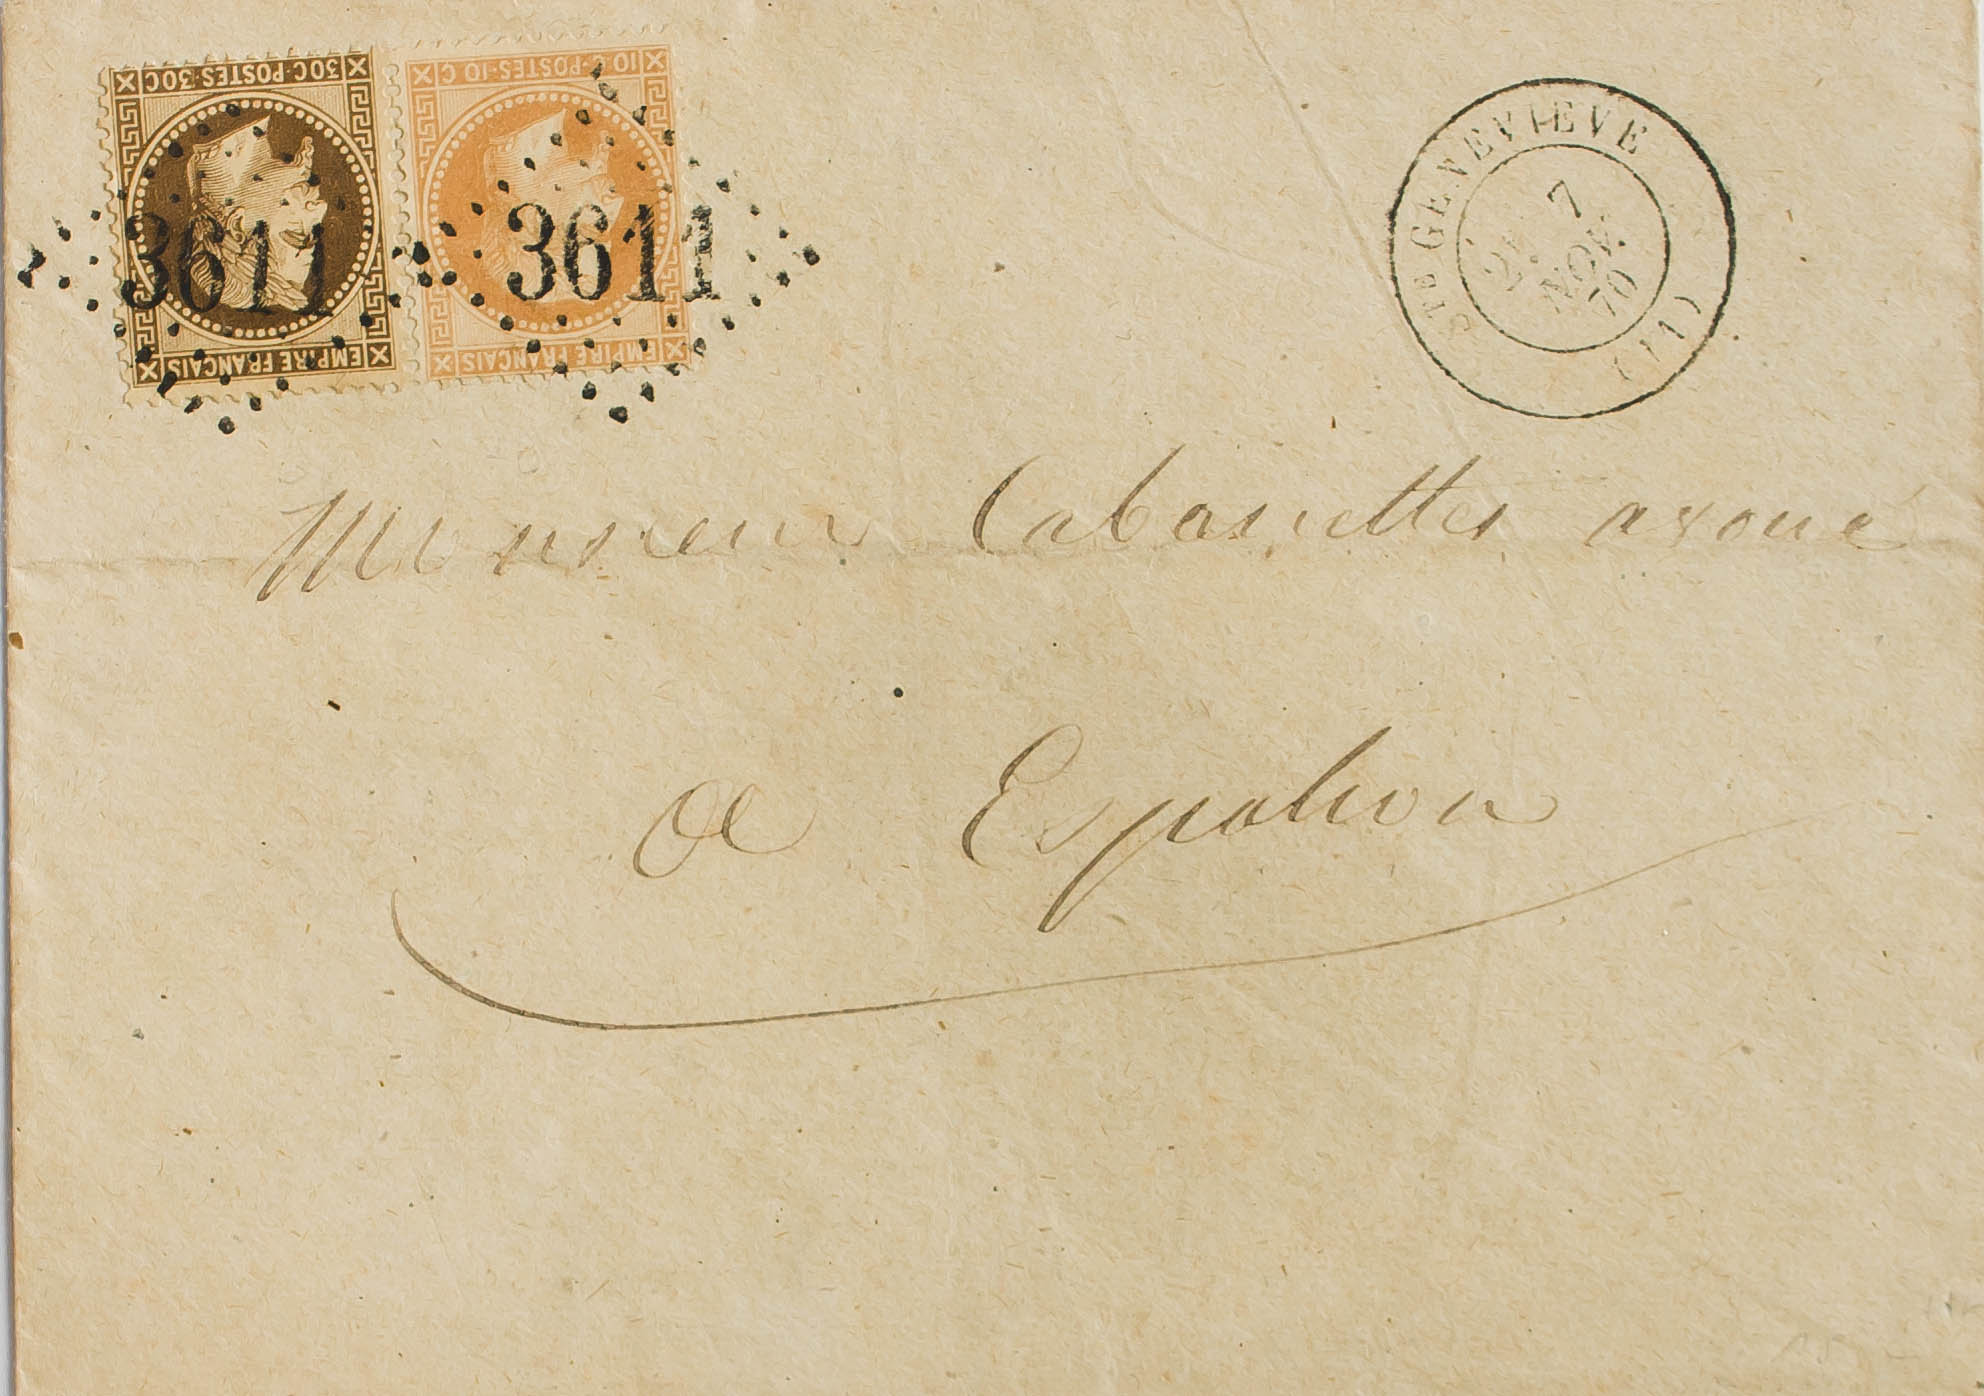 30C·POSTES·30C
EMPIRE FRANÇAIS
10 C·POSTES·10 C
EMPIRE FRANÇAIS
3611
3611
STE GENEVIEVE
7
NOV.
70
(11)
Monsieur Cabasnettes avoué
a Espalion